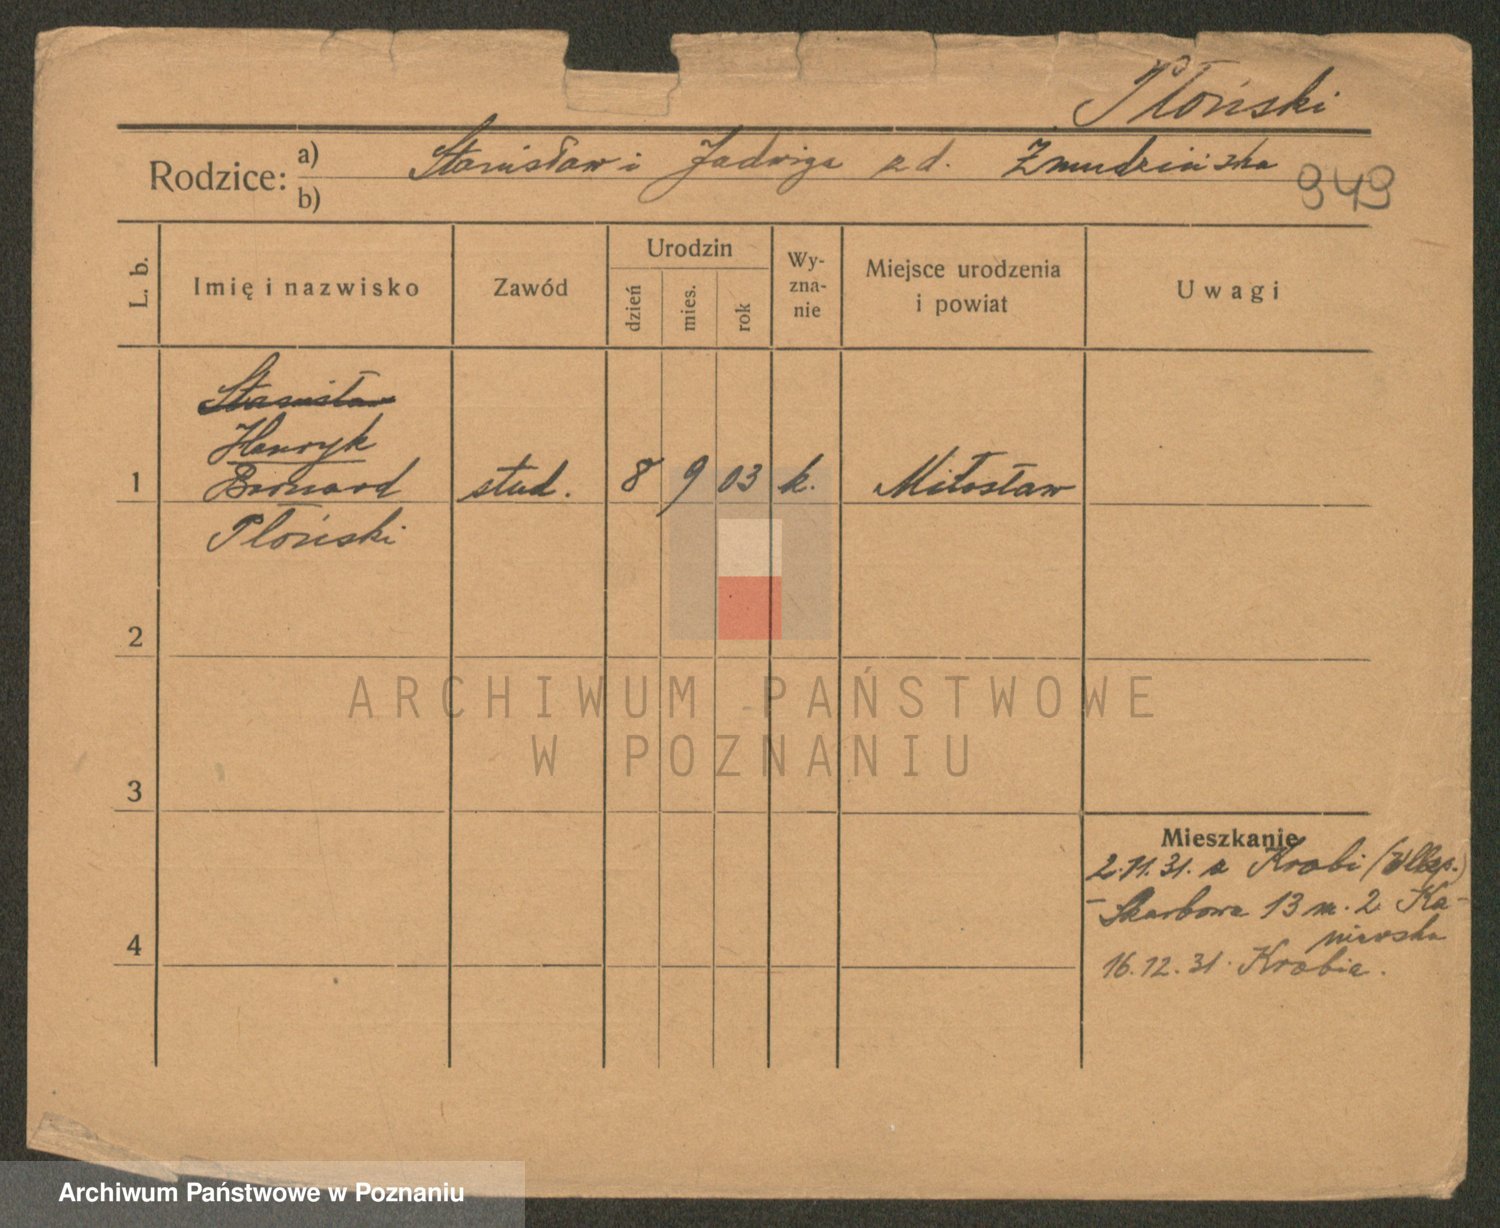 Płoński
Rodzice: a) Stanisław i Jadwiga zd. Żmudzińska
b)
949
L. b.
Imię i nazwisko
Zawód
Urodzin
dzień
mies.
rok
Wy-
zna-
nie
Miejsce urodzenia
i powiat
Uwagi
Stanisław
Henryk
1 Bernard stud. 8 9 03 k. Miłosław
Płoński
2
3
4
Mieszkanie
2.11.31. z Krobi (Wlkp.)
- Skarbowa 13 m. 2 Ka-
niewska
16.12.31. Krobia.
ARCHIWUM PAŃSTWOWE
W POZNANIU
Archiwum Państwowe w Poznaniu